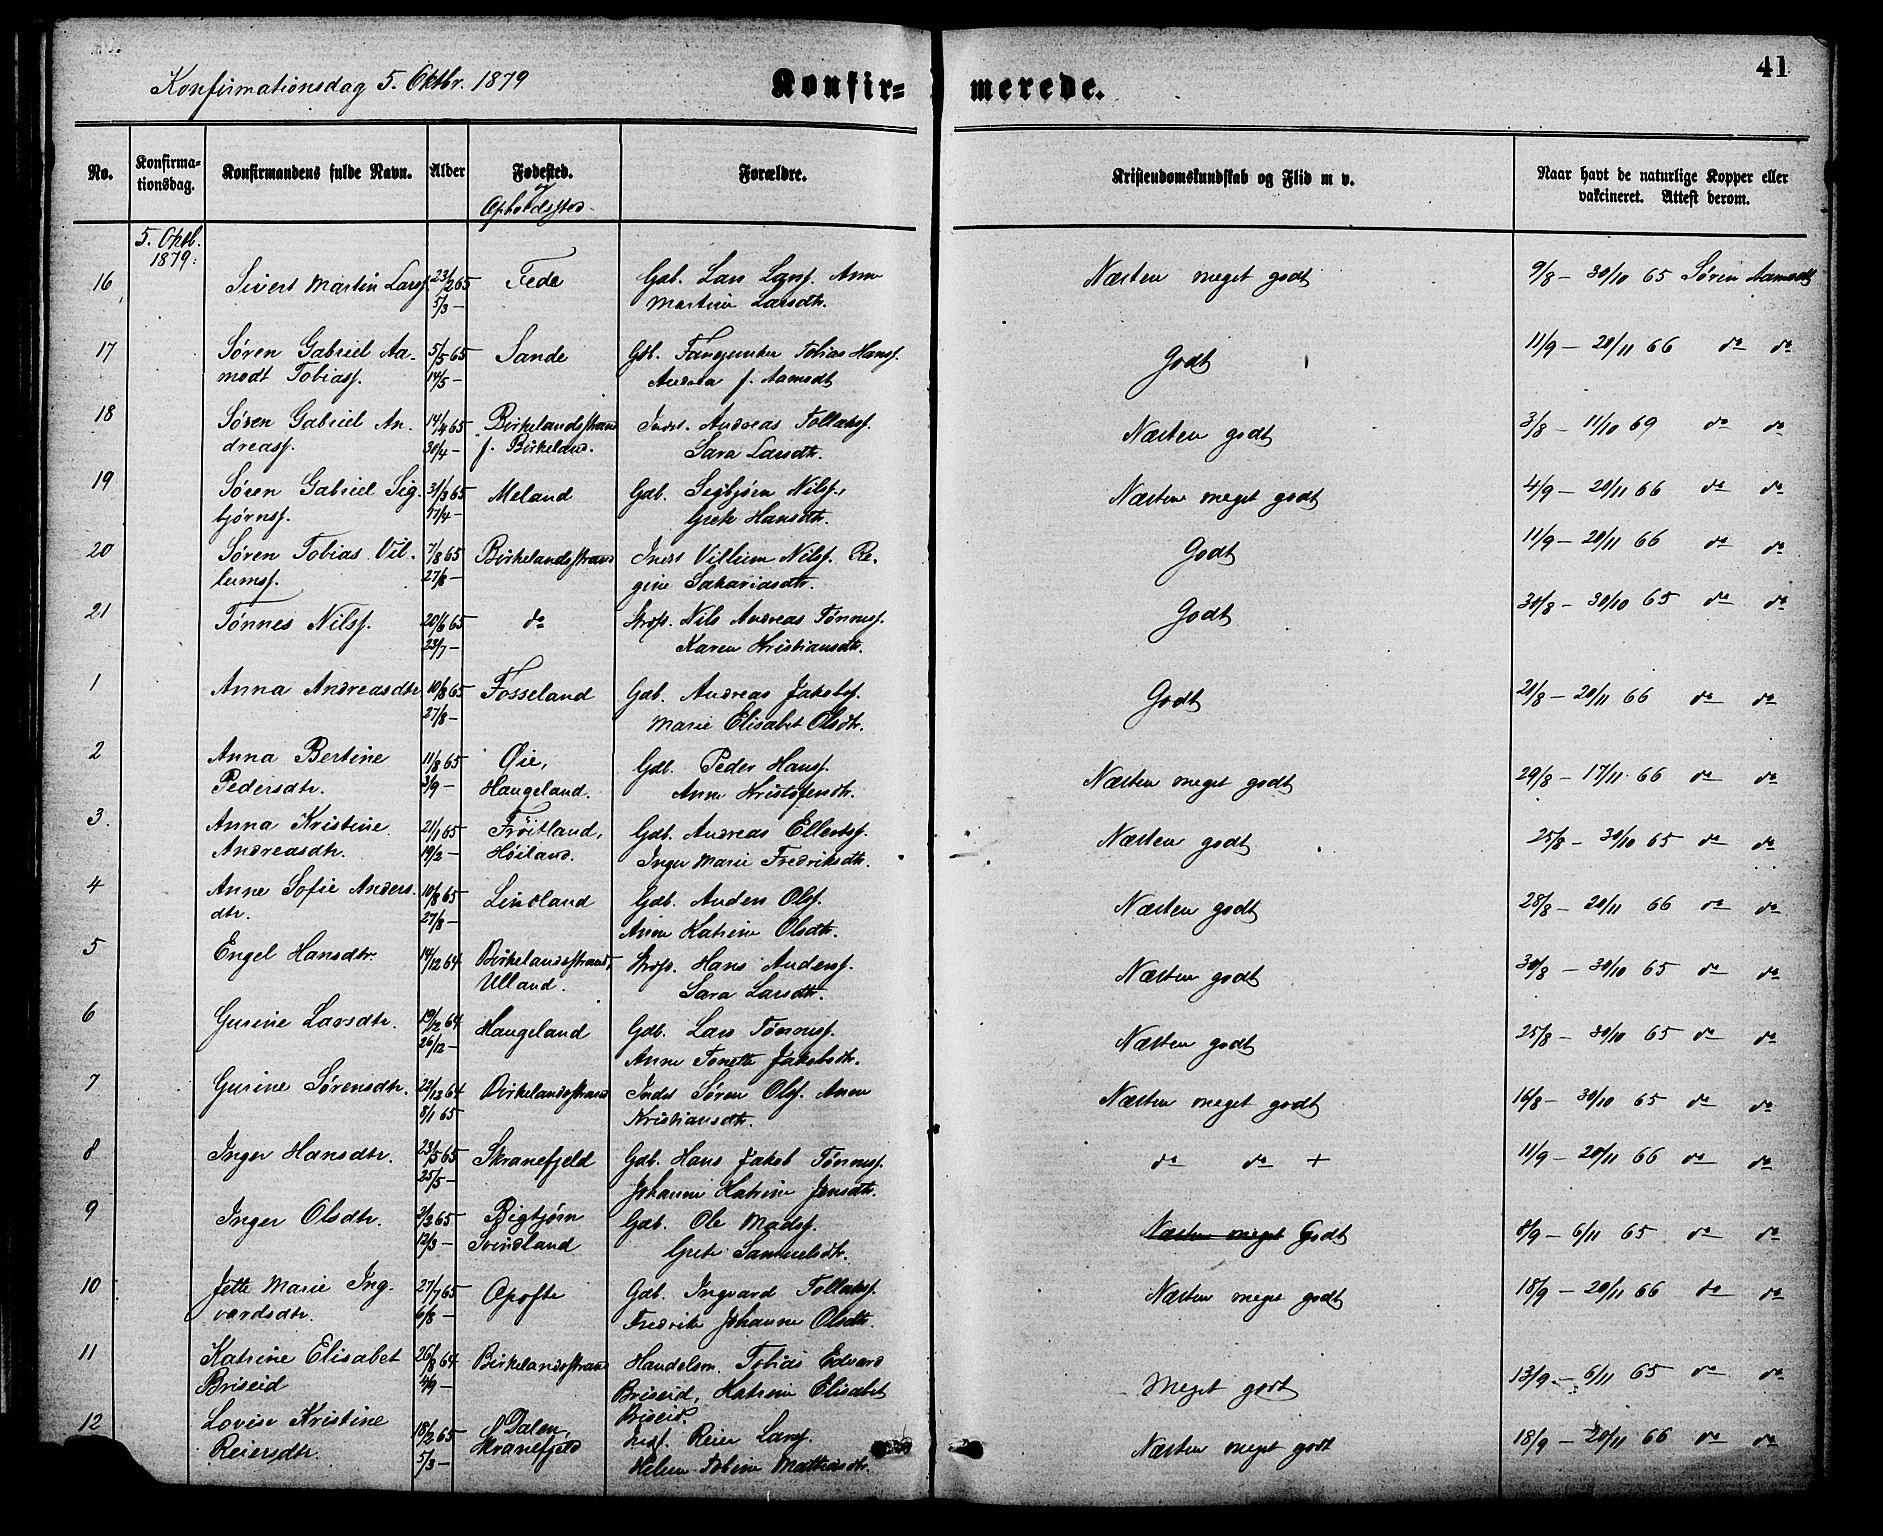 41
Konfirmationsdag 5. Oktbr. 1879
Konfir= merede.
No. Konfirma- tionsdag. Konfirmandens fulde Navn. Alder Fødested. og Opholdssted. Forældre. Kristendomskundskab og Flid m v. Naar havt de naturlige Kopper eller vakcineret. Attest derom.
5. Oktb. 1879.
16 Sivert Martin Larsf. 23/2 65 Fede Gdb. Lars Larsf. Anne Næsten meget godt 9/8 – 30/10 65 Søren Aamodt
5/3 – Martine Larsdtr.
17 Søren Gabriel Aa- 5/5 65 Sande Gdb. Tobias Hansf. Godt 11/9 – 20/11 66 do do
modt Tobiasf. 14/5 – Andrea f. Aamodt
18 Søren Gabriel An- 14/4 65 Birkelandsstrand Inds. Andreas Tollaksf. Næsten godt 3/8 – 11/10 69 do do
dreasf. 30/4 – f. Birkeland. Sara Larsdtr.
19 Søren Gabriel Sig 31/3 65 Meland Gdb. Sigbjørn Nilsf., Næsten meget godt 4/9 – 20/11 66 do do
bjørnsf. 17/4 – Grete Hansdtr.
20 Søren Tobias Vil- 7/8 65 Birkelandsstrand Inds Villum Nilsf. Re- Godt 11/9 – 20/11 66 do do
lumsf. 27/8 – gine Sakariasdtr.
21 Tønnes Nilsf. 20/6 65 do Nils Andreas Tønnesf. Godt 30/8 – 30/10 65 do do
23/7 – Karen Kristiansdtr.
1 Anna Andreasdtr 10/8 65 Fosseland Gdb. Andreas Jakobsf. Godt 21/8 – 20/11 66 do do
27/8 – Marie Elisabet Olsdtr.
2 Anna Bertine 11/8 65 Øie, Gdb. Peder Hansf. Næsten meget godt 29/8 – 17/11 66 do do
Pedersdtr. 3/9 – Haugeland. Anne Kristofersdtr.
3. Anna Kristine 21/1 65 Frøitland, Gdb. Andreas Ellertsf. Næsten godt 25/8 – 30/10 65 do do
Andreasdtr. 19/2 – Høiland. Inger Marie Fredriksdtr.
4 Anne Sofie Anders 10/8 65 Lindland Gdb. Anders Olsf. Næsten godt 28/8 – 20/11 66 do do
dtr. 27/8 – Anne Katrine Olsdtr.
5 Engel Hansdtr 14/12 64 Birkelandsstrand, Hans Andersf. Næsten godt 30/8 – 30/10 65 do do
Ulland. Sara Larsdtr.
6 Gurine Larsdtr. 19/12 64 Haugeland Gdb. Lars Tønnesf. Næsten godt 25/8 – 30/10 65 do do
26/12 – Anne Tonette Jakobsdtr.
7 Gurine Sørensdtr. 22/12 64 Birkelandsstrand Inds Søren Olsf. Anne Næsten meget godt 16/8 – 30/10 65 do do
8/1 65 Kristiansdtr.
8 Inger Hansdtr. 23/5 65 Skranefjeld Gdb. Hans Jakob Tønnesf. do do + 11/9 – 20/11 66 do do
25/5 – Johanne Katrine Jensdtr.
9 Inger Olsdtr. 3/2 65 Bigtjørn Gdb. Ole Madsf. Næsten meget Godt 8/9 – 6/11 65 do do
12/3 – Svindland Grete Samuelsdtr.
10 Jette Marie Ing- 27/7 65 Opofte Gdb. Ingvard Tollaksf. Næsten meget godt 18/9 – 20/11 66 do do
vardsdtr. 6/8 – Fredrike Johanne Olsdtr.
11 Katrine Elisabet 26/8 64 Birkelandsstrand Handelsm. Tobias Edvard Meget godt 13/9 – 6/11 65 do do
Briseid 4/9 – Briseid, Katrine Elisabet
Briseid.
12 Lovise Kristine 18/2 65 Dalen, Inds. Reier Larsf. Næsten meget godt 18/9 – 20/11 66 do do
Reiersdtr. 5/3 – Skranefjeld Helene Tobine Mathiasdtr.